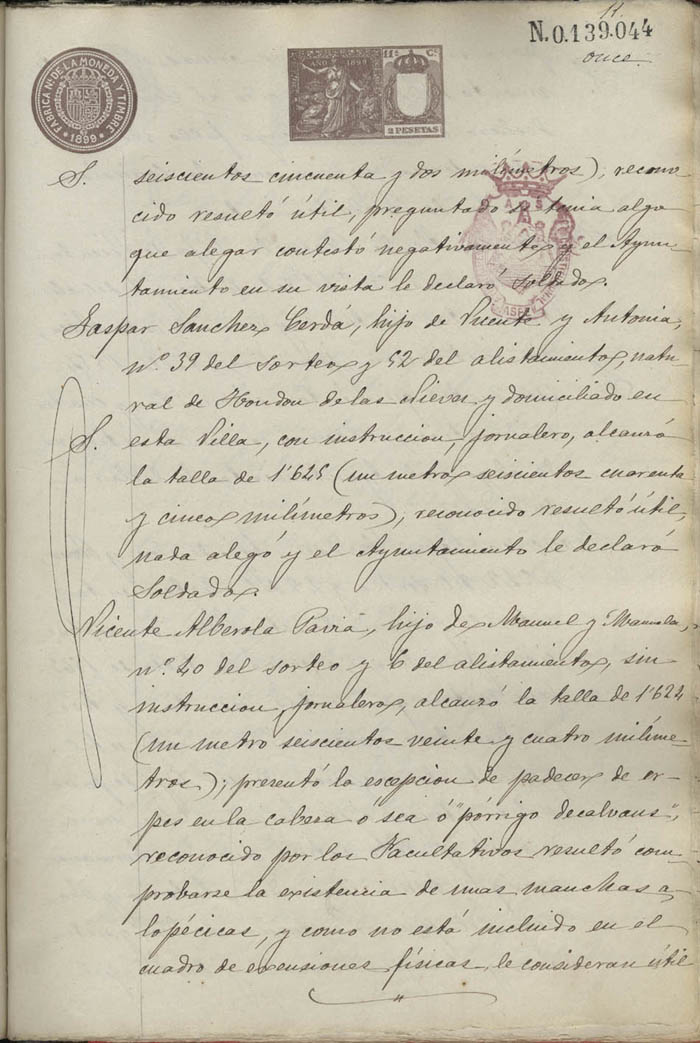 11.
N.0.139.044
once.
FABRICA Nᴸ DE LA MONEDA Y TIMBRE
1899
AÑO 1899
11ª Cˢ
2 PESETAS
S. seiscientos cincuenta y dos milímetros); recono-
cido resultó útil, preguntado si tenia algo
que alegar contestó negativamente y el Ayun-
tamiento en su vista le declaró Soldado.
Gaspar Sanchez Cerdá, hijo de Vicente y Antonia,
n.º 39 del sorteo y 52 del alistamiento, natu-
ral de Hondon de las Nieves y domiciliado en
S. esta Villa, con instruccion, jornalero, alcanzó
la talla de 1'645 (un metro seiscientos cuarenta
y cinco milímetros); reconocido resultó útil,
nada alegó y el Ayuntamiento le declaró
Soldado.
Vicente Alberola Pavia, hijo de Manuel y Manuela,
n.º 40 del sorteo y 6 del alistamiento, sin
instruccion, jornalero, alcanzó la talla de 1'624
(un metro seiscientos veinte y cuatro milíme-
tros); presentó la escepcion de padecer de er-
pes en la cabeza ó sea ó "pórrigo decalvans",
reconocido por los Facultativos resultó com
probarse la existencia de unas manchas a-
lopécicas, y como no está incluido en el
cuadro de exensiones físicas, le consideran útil